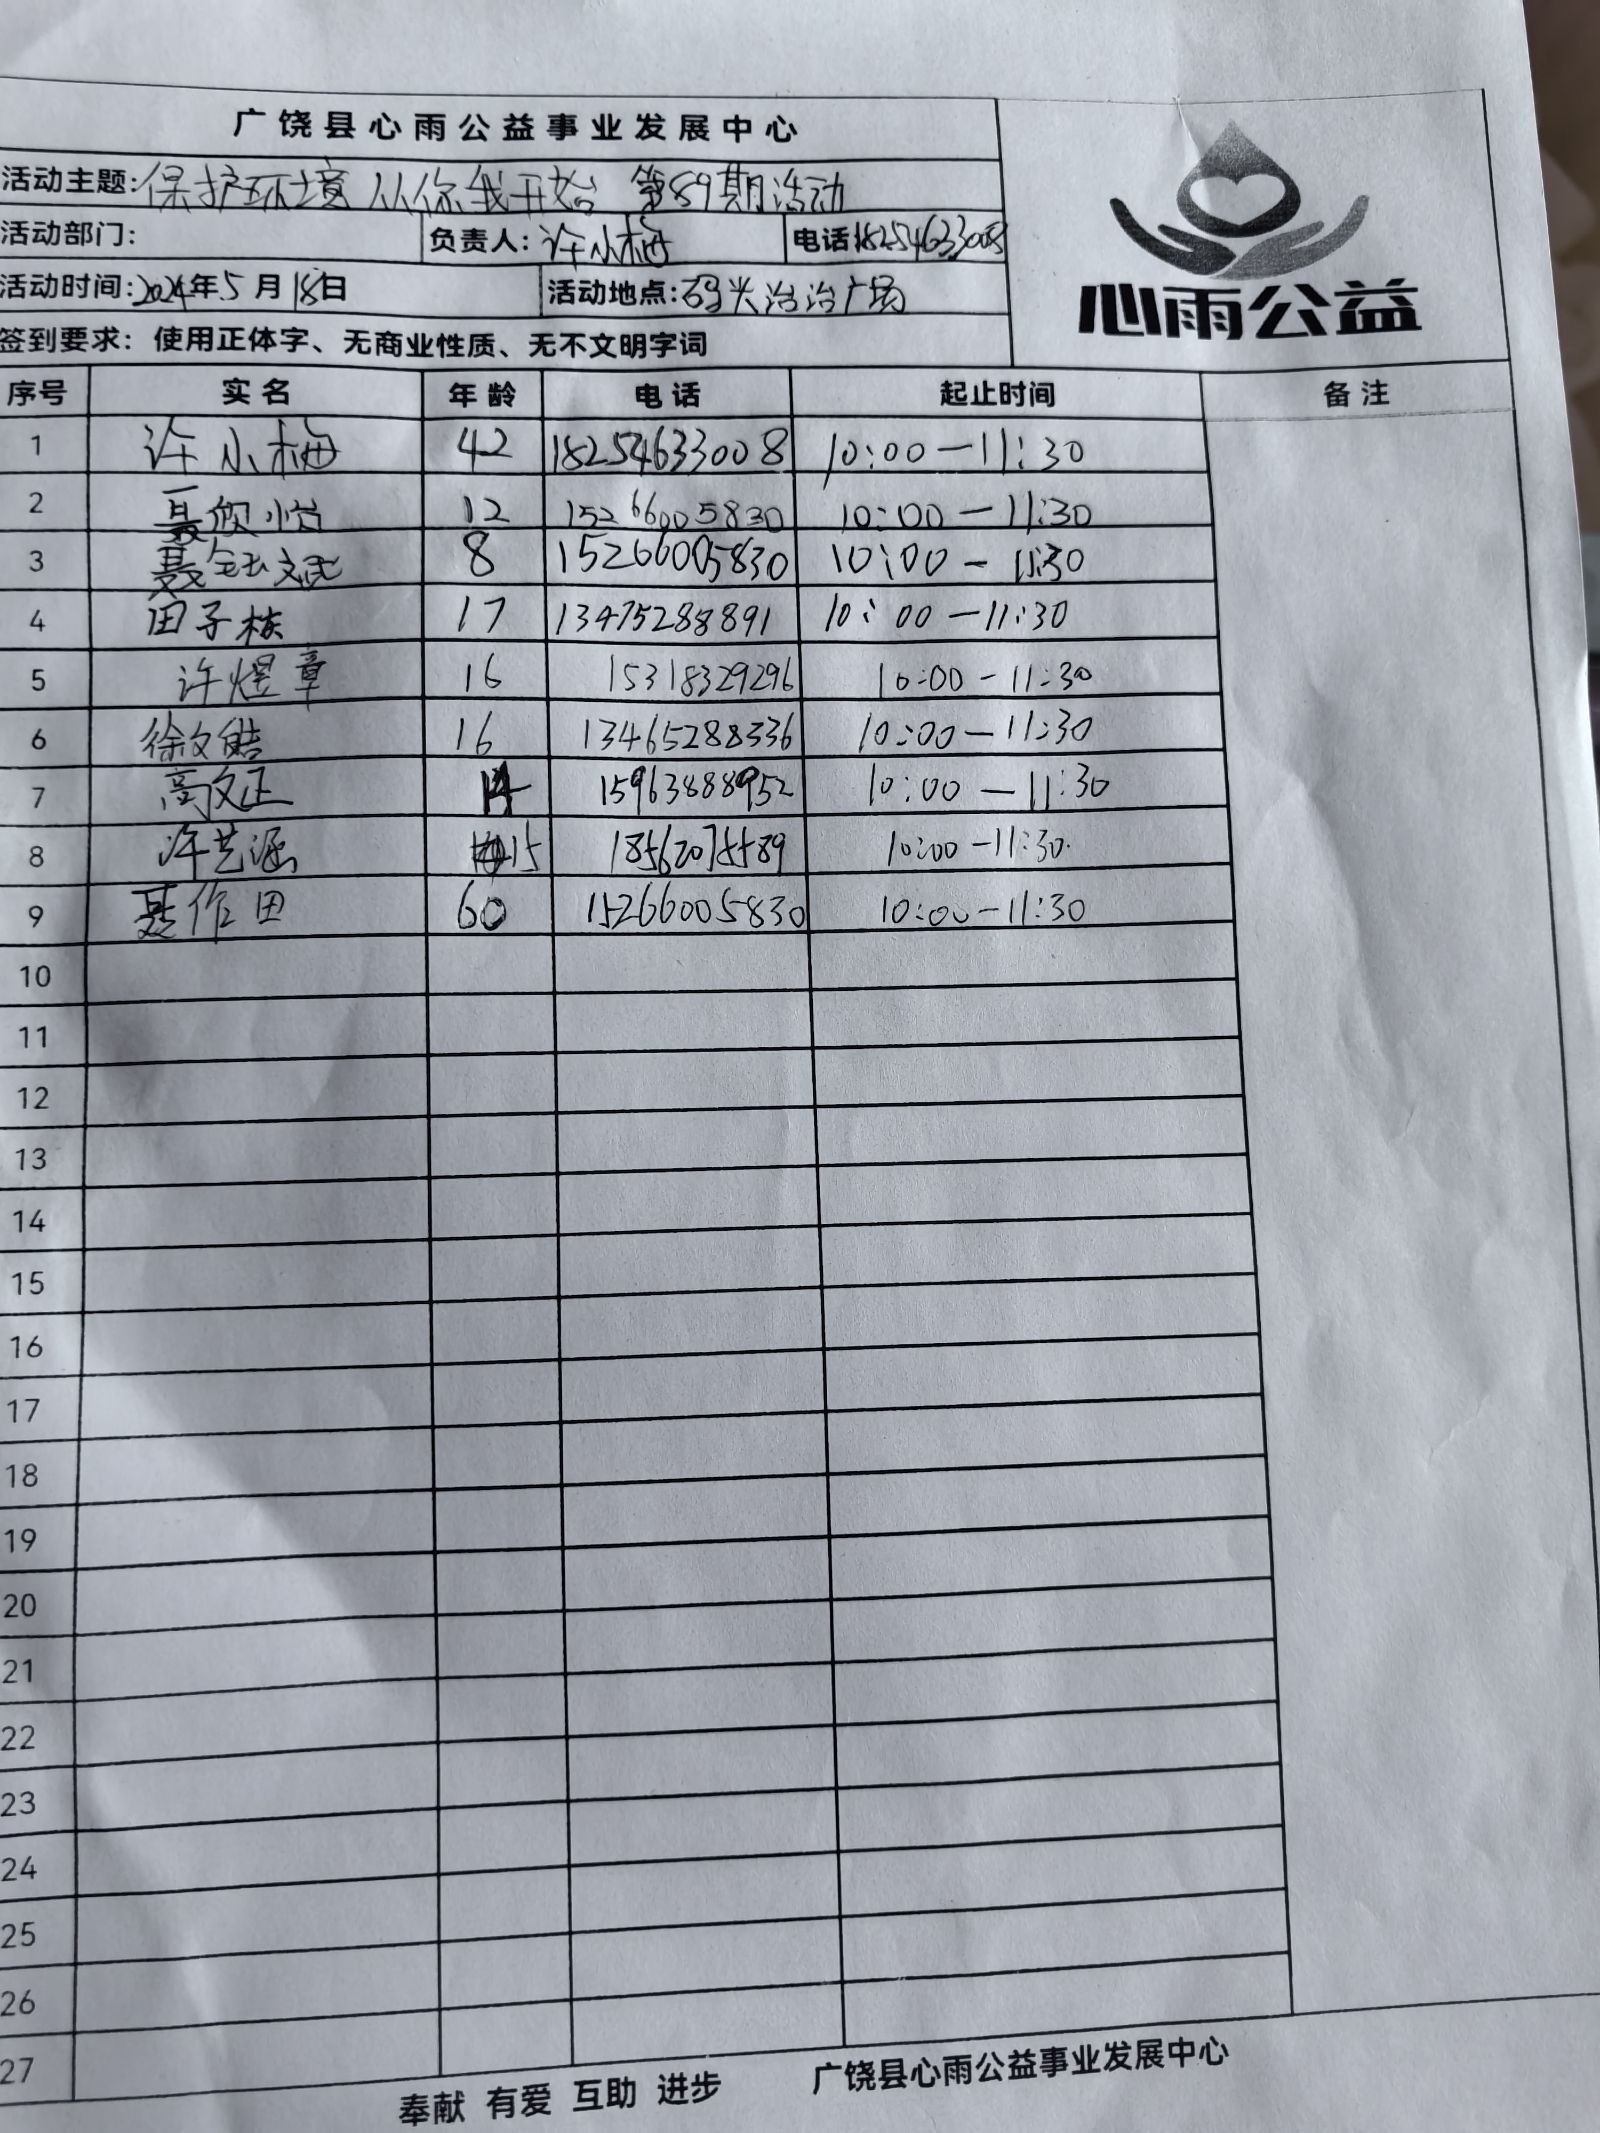 广饶县心雨公益事业发展中心
活动主题:保护环境 从你我开始 第89期活动
心雨公益
活动部门: 负责人: 许小梅 电话18254633008
活动时间:2024年5月18日 活动地点:码头治治广场
签到要求：使用正体字、无商业性质、无不文明字词
序号 实名 年龄 电话 起止时间 备注
1 许小梅 42 18254633008 10:00-11:30
2 聂欣怡 12 15266005830 10:00-11:30
3 聂 8 15266005830 10:00-11:30
4 田子栋 17 13475288891 10:00-11:30
5 许煜章 16 15318329296 10:00-11:30
6 徐文皓 16 13465288336 10:00-11:30
7 高文正 14 15963888952 10:00-11:30
8 许艺涵 15 10:00-11:30
9 聂作田 60 15266005830 10:00-11:30
10
11
12
13
14
15
16
17
18
19
20
21
22
23
24
25
26
27
奉献 有爱 互助 进步 广饶县心雨公益事业发展中心